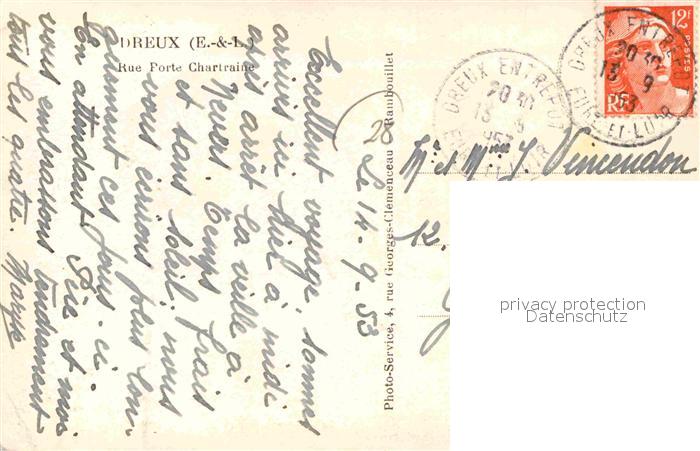 DREUX (E.-&-L.)
Rue Porte Chartraine
Le 14-9-53
Excellent voyage, sommes
arrivés ici hier à midi
après arrêt la veille à
Temps frais
et sans soleil, nous
vous écrirons plus lon-
guement ces jours-ci.
En attendant et moi
vous embrassons tendrement
tous les quatre. Maryse
Photo-Service, 4, rue Georges-Clémenceau Rambouillet
DREUX ENTREPOT
20 30
13 9
1953
EURE-ET-LOIR
DREUX ENTREPOT
20 30
13 9
53
EURE-ET-LOIR
12F
POSTES
RF
Mr et Mme J. Vincendon
12,
privacy protection
Datenschutz